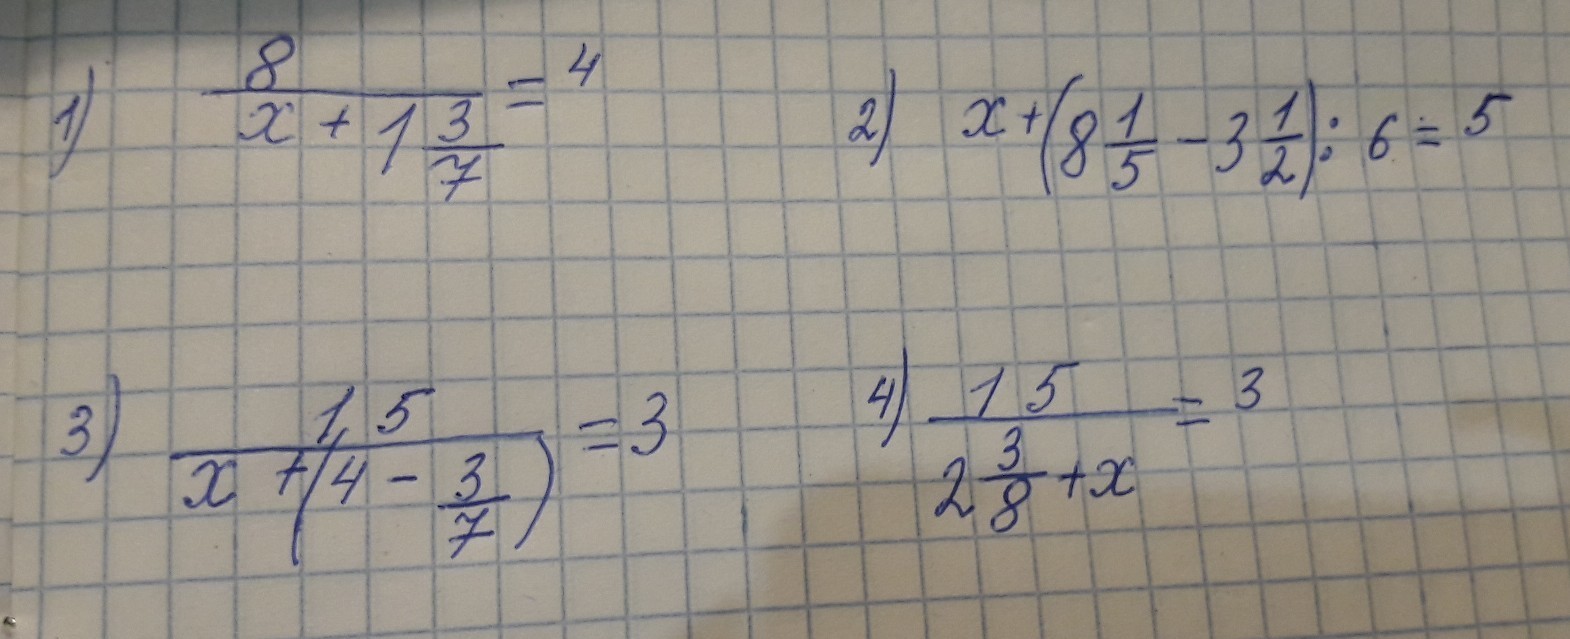 1) 8/(x + 1 3/7) = 4
2) x + (8 1/5 - 3 1/2) : 6 = 5
3) 15/(x + (4 - 3/7)) = 3
4) 15/(2 3/8 + x) = 3